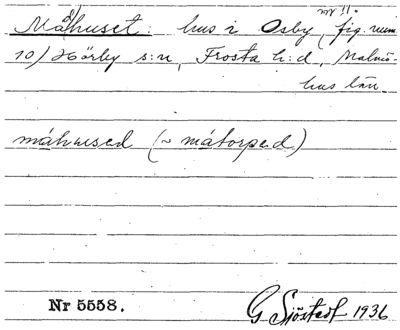 Måhuset: hus i Osby, fig. num
nr 11.
10) Hörby s:n, Frosta h:d, Malmö-
hus län.
måhused (~ måtorped)
Nr 5558.
G Sjöstedt 1936